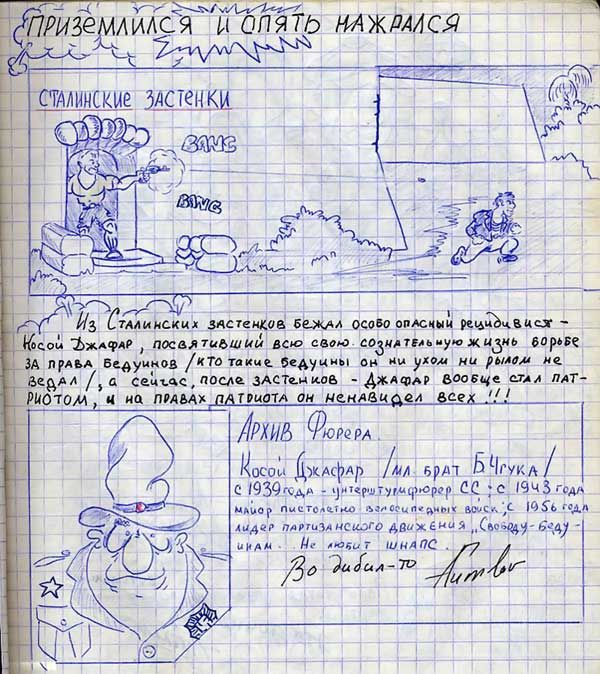 ПРИЗЕМЛИЛСЯ И ОПЯТЬ НАЖРАЛСЯ
СТАЛИНСКИЕ ЗАСТЕНКИ
BANC
BANC
Из Сталинских застенков бежал особо опасный рецидивист –
Косой Джафар, посвятивший всю свою сознательную жизнь борьбе
за права бедуинов /кто такие бедуины он ни ухом ни рылом не
ведал/, а сейчас, после застенков – Джафар вообще стал пат-
риотом, и на правах патриота он ненавидел всех!!!
Архив Фюрера.
Косой Джафар /мл. брат БЧгука/
с 1939 года – унтерштурмфюрер СС; с 1943 года
майор пистолетно велосипедных войск; с 1956 года
лидер партизанского движения „Свободу – беду-
инам. Не любит шнапс.
Во дибил-то